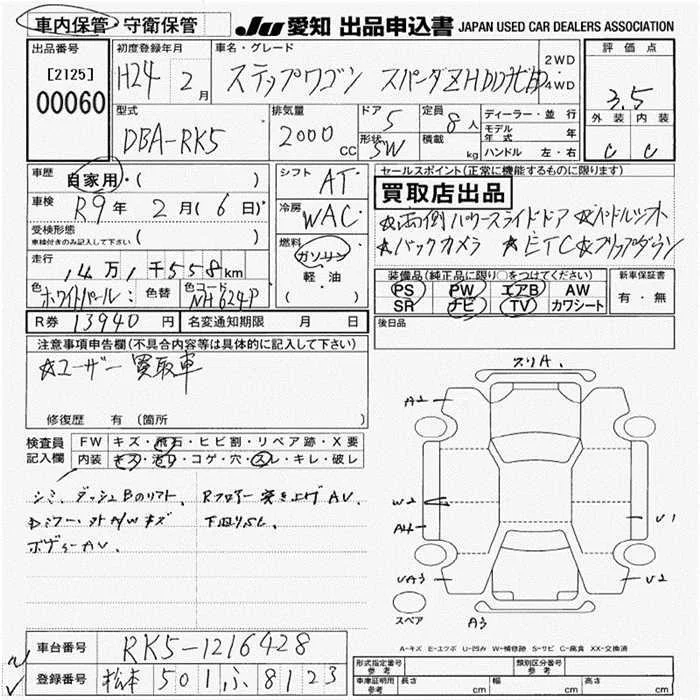 車内保管・守衛保管
JU 愛知 出品申込書 JAPAN USED CAR DEALERS ASSOCIATION
出品番号
[2125]
00060
初度登録年月
H24 2月
車名・グレード
ステップワゴン スパーダZ HDD
2WD・4WD
評価点
3.5
外装 内装
C C
型式
DBA-RK5
排気量
2000 CC
ドア 5
形状 SW
定員 8人
積載 kg
ディーラー・並行
モデル年式 年
ハンドル 左・右
車歴 自家用・( )
車検 R9年 2月(6日)
受検形態
車検付きのみ記入して下さい ( )
走行
14万1千558km
色 ホワイトパール: 色替 色コード NH624P
R券 13940円 名変通知期限 月 日
シフト AT
冷房 WAC
燃料 ガソリン
軽・油
( )
セールスポイント(正常に機能するものに限ります)
買取店出品
☆両側パワースライドドア ☆パドルシフト
☆バックカメラ ☆ETC ☆フリップダウン
装備品(純正品に限り○をつけてください)
PS PW エアB AW
SR ナビ TV カワシート
新車保証書
有・無
後日品
注意事項申告欄(不具合内容等は具体的に記入して下さい)
☆ユーザー買取車
修復歴 有(箇所 )
検査員記入欄
FW キズ・飛石・ヒビ割・リペア跡・X要
内装 キズ・汚レ・コゲ・穴・スレ・キレ・破レ
シミ、ダッシュBのリフト、Rフロアー突き上げAV、
ボディーAV、
スリA、
A2
W2
A4
UA3
A3
U1
U2
スペア
A-キズ E-エクボ U-凹み W-補修跡 S-サビ C-腐食 XX-交換済
車台番号 RK5-1216428
登録番号 松本 501 ふ 8123
形式指定番号 参考
類別区分番号 参考
車庫証明用 参考 長さ cm 幅 cm 高さ cm